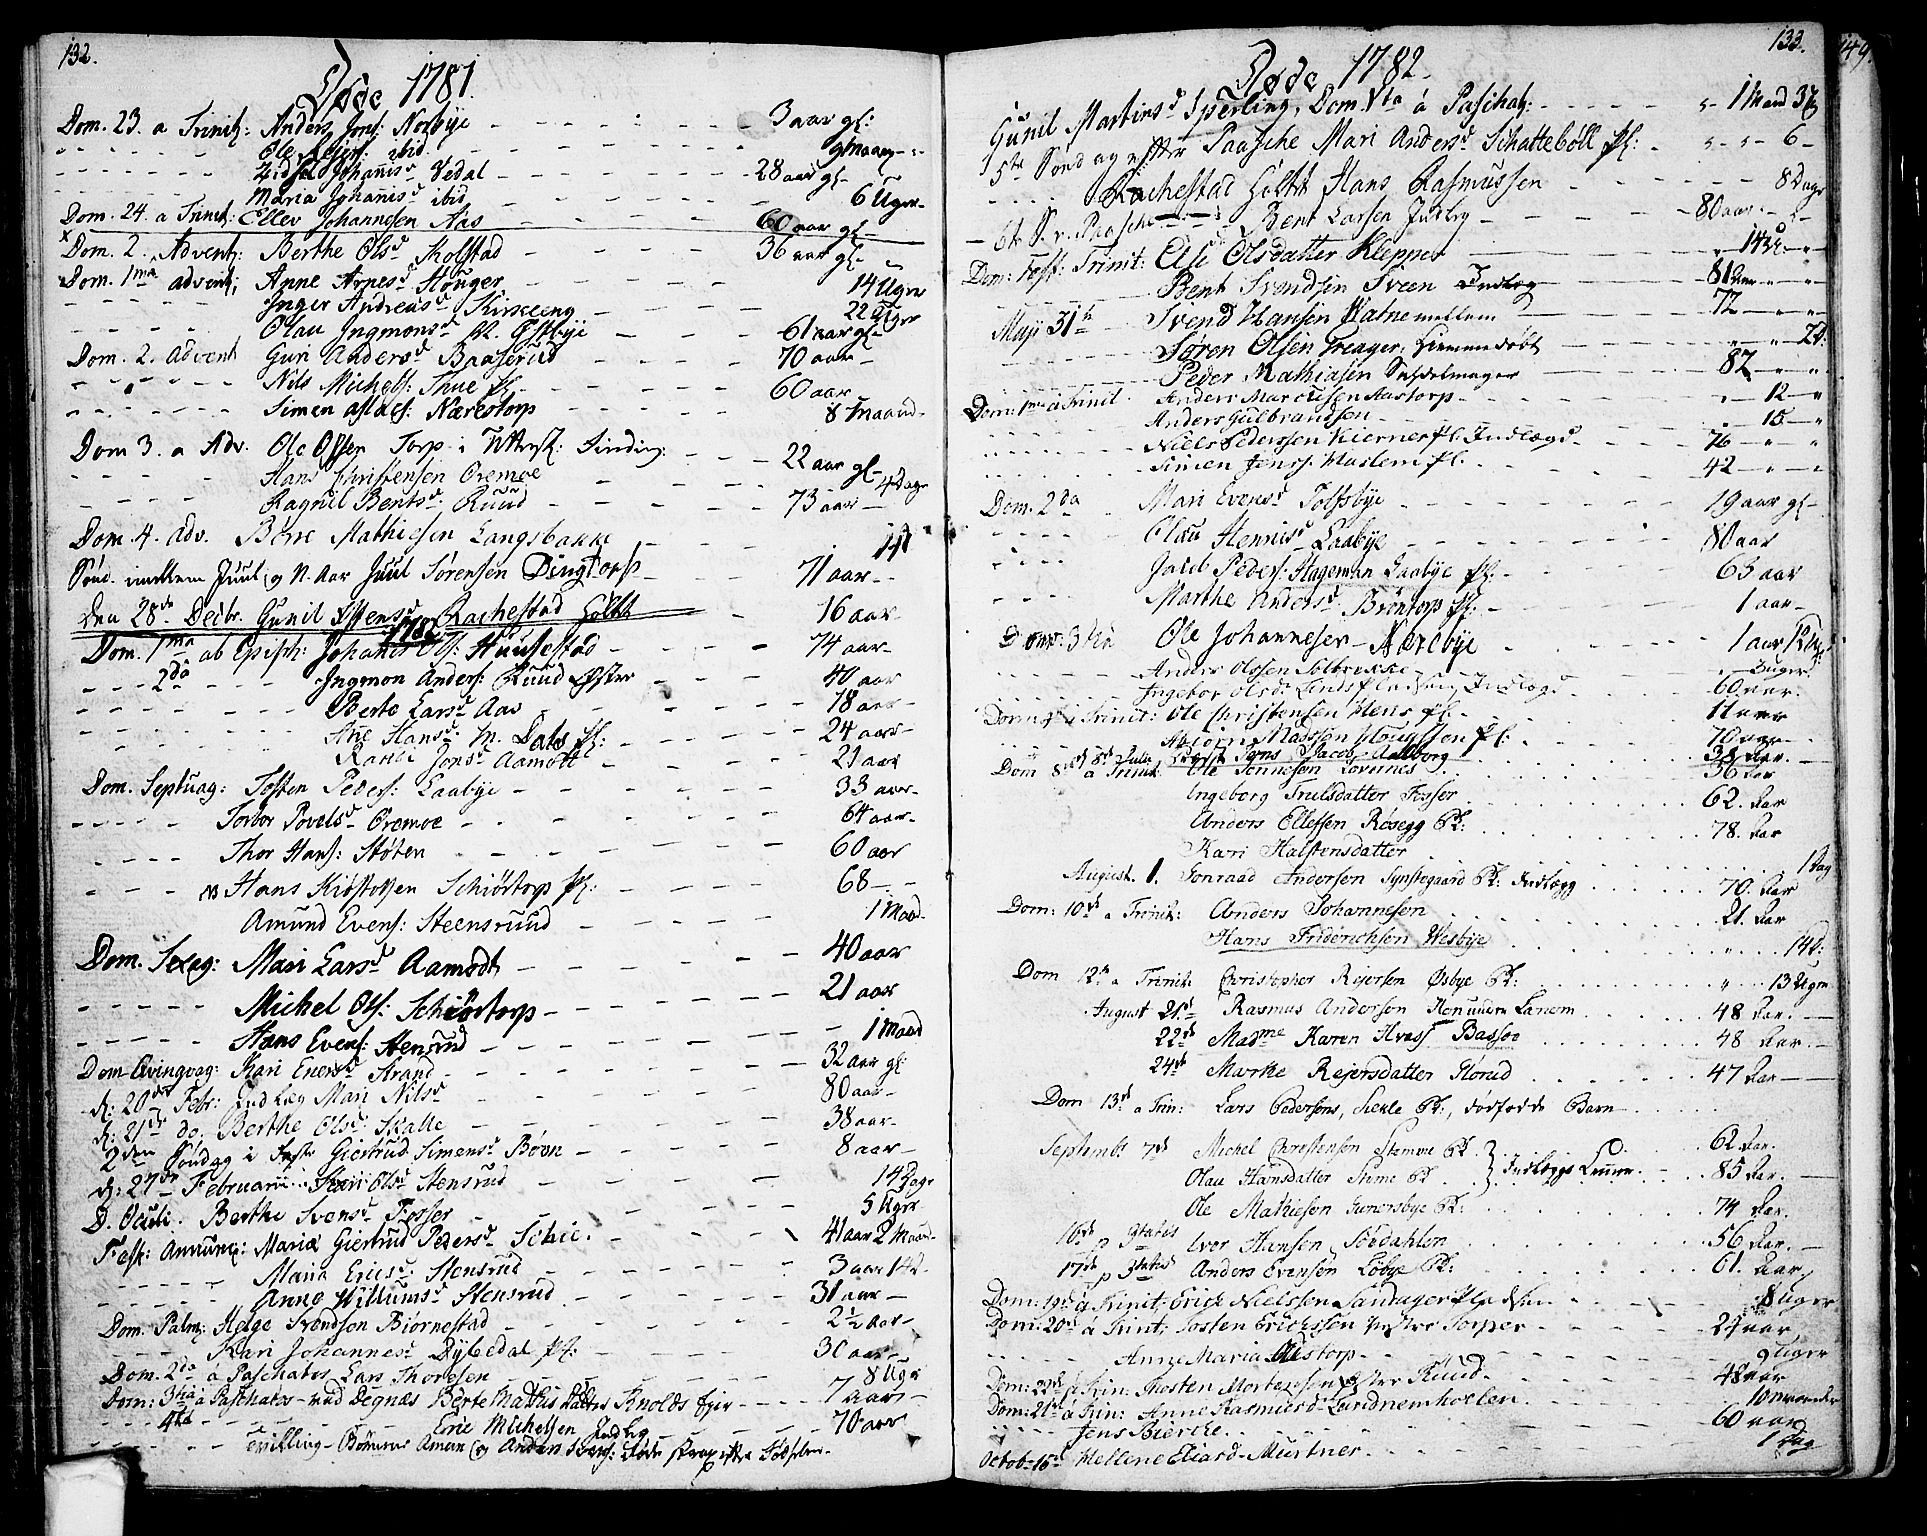 132.
Døde 1781.
Dom. 23. a Trinit: Anders Jons: Norbye - - - 3 aar gl:
Ole ibid. - - - 9 Maan
Johanisd Vedal - - - 28 aar gl-
Maria Johanisd ibid - - - 6 Uger
Dom. 24. a Trinit: Ellev Johannesen Aas - - - 60 aar gl-
Dom. 2. Advent: Berthe Olsd Skolstad - - - 36 aar gl-
Dom. 1ma advent: Anne Arnesd Houger - - - 14 Uger
Inger Andreasd Kirkeeng - - - 22 Uger
Olau Ingmonsd Østbye - - - 61 aar gl-
Dom. 2. Advent Guri Andersd Baaserud - - - 70 aar-
Nils Michels: Thue Pl - - - 60 aar
Simen Aslaks: Nærestorp - - - 8 Maand-
Dom 3. a Adv. Ole Olsen Torp i - - - 22 aar gl-
Hans Christensen Oremoe - - - 4 Dage
Ragnil Bentsd Ruud - - - 73 aar
Dom. 4. Adv. Børre Mathiesen Langsbakke - - - 141
Sønd. imellem Juul og N. Aar Juul Sørensen Dingtorp - - - 71 aar-
Den 28de Decbr. Gunil Rachestad Holte - - - 16 aar-
1782
Dom. 1ma ab Epiph: Johanes Ols: Huusestad - - - 74 aar-
- - - 2da Ingmon Anders: Ruud Øster - - - 40 aar
Berte Larsd Aas - - - 18 aar-
Ane Hansd M. Dals Pl: - - - 24 aar-
Jonsd Aamott - - - 21 aar
Dom. Septuag: Tosten Peders: Laabye - - - 33 aar-
Torbor Povelsd Oremoe - - - 64 aar-
Thor Hans: Støten - - - 60 aar
Hans Kiøstolsen Schiørtorp Pl: - - - 68 - -
Amund Evens: Steensruud - - - 1 Maad-
Dom. Sexag: Mari Larsd Aamodt - - - 40 aar
Michel Ols: Schiørtorp - - - 21 aar
Hans Evens: Stensrud - - - 1 Maad
Dom Qvinqvag: Kari Enersd Strand - - - 32 aar gl:
d: 20de Febr: Indlæg Mari Nilsd - - - 80 aar-
d: 21de do: Berthe Olsd Skalle - - - 38 aar-
2den Søndag i Faste Giertrud Simensd Bøvn - - - 8 aar-
d: 27de Februarii Kari Olsd Stensrud - - - 14 Dage
D. Oculi. Berthe Svensd Fosser - - - 5 Uger
Fest: Annunc: Mariæ Giertrud Pedersd Schie. - - - 41 aar 2 Maad-
Maria Ericsd Stensrud - - - 3 aar 14d-
Anne Willumsd Stensrud - - - 31 aar -
Dom. Palm: Helge Svendsen Biornestad - - - 2½ aar-
Kari Johannesd Dybedal Pl: - - - 30 aar-
Dom. 2da a Paschatos Lars Thoresen - - - 8 Uge
Dom: 3tia a Paschatos - ved Degnæs Berte Mathis datter Knolds Eier - - - 7 aar-
- - - 4ta Eric Michelsen Indlæg - - - 70 aar
Tvilling-Børnene Amun og Anders døde strax efter Fødselen-

133.
Døde 1782.
Gunil Martinsd Sperling, Dom. Vta a Paschat: - - - 1 Maned 3 Ug
5te Søndag efter Paasche Mari Andersd Schattebøll Pl: - - - 6 -
Rachestad Holtet Hans Rasmussen - - - 8 Dage
- 6te S. e. Paasche Bent Larsen Indlæg - - - 80 aar-
Dom: Fest: Trinit: Else Olsdatter Klepper
Bent Svendsen Sveen Indlæg - - - 81 aar
Maji 31te Svend Hansen Watnemellem - - - 72
Søren Olsen Treager, hiemmedøbt - - - 2d:
Peder Mathiasen Saddelmager - - - 87
Dom: 1ma a Trinit. Anders Marcusen Aastorp - - - 12
Anders Gulbrandsen - - - 15
Niels Pederssen Kierner Pl: Indlægs - - - 76
Simen Jenss: Maslem Pl. - - - 42
Dom. 2da Mari Evensd Tofsbye - - - 19 aar gl-
Olau Hennisd Laabye - - - 80 aar
Jacob Peders: Hageman Laabye Pl: - - - 65 aar
Marthe Andersd Brøntorp Pl: - - - 1 aar-
Dom: 3tia Ole Johannesen Nørebye - - - 1 aar 12 Ug:
Anders Olssen Solbrekke - - - 3 uger
Ingebor Olsdr Lunds Pladsen Indlægs - - - 60 aar.
Dom: a Trinit: Ole Christensen Hens Pl. - - - 11 aar
Asbiørn Masson Pl: - - - 70 aar
d 8de Julii Tyns Jacob Aalborg - - - 38 Aar.
Dom 8de a Trinit: Ole Tonnesen Lovenes - - - 56 Aar
Ingeborg Trulsdatter Fosser - - - 62. Aar
Anders Ellefsen Røsegg Pl: - - - 78. Aar
Kari Halstensdatter
August. 1. Conraad Andersen Synstegaard Pl: Indlægg - - - 1 Dag
Dom: 10de a Trinit: Anders Johannesen - - - 70. Aar
Hans Friderichsen Wesbye - - - 21. Aar
14d:
Dom 12te a Trinit: Christopher Rejersen Øsbye Pl: - - - 13 Uger
August 21de Rasmus Andersen Lanem - - - 48 Aar.
22de Madme Karen Hvass Bassøe - - - 48 Aar.-
24de Marke Rejersdatter Horud - - - 47 Aar
Dom 13de a Trin: Lars Pedersens, Sekle Pl:, dødfødde Barn -
Septembr 7de Michel Christensen Stamoe Pl. - - - 62 Aar.
Olau Hansdatter Stime Pl. } Indlæggs Lemmer - - - 85 Aar.
Ole Mathiesen Gunersbye Pl: - - - 74 Aar.
16de p 3tatis Iver Hansen Søedahlen - - - 56 Aar.-
17de p 3tatis Anders Evensen Løbye Pl: - - - 61. Aar
Dom: 19de a Trinit: Erich Nielssen Sandager Pladsen. - - - 8 Uger
Dom: 20de a Trinit: Tosten Erichssen Torper - - - 29 aar
Anne Maria Olstorp - - - 9 Uger
Dom: 22de a Trin: Thosten Mortensen Øster Ruud. - - - 48 aar
Dom: 21de a Trin: Anne Rasmusd Lundnemhoelen. - - - 10 maaneder
Jens Biercke. - - - 60 aar
Octobr 16de Hellene Eliard - Murtner - - - 1 Dag
149.